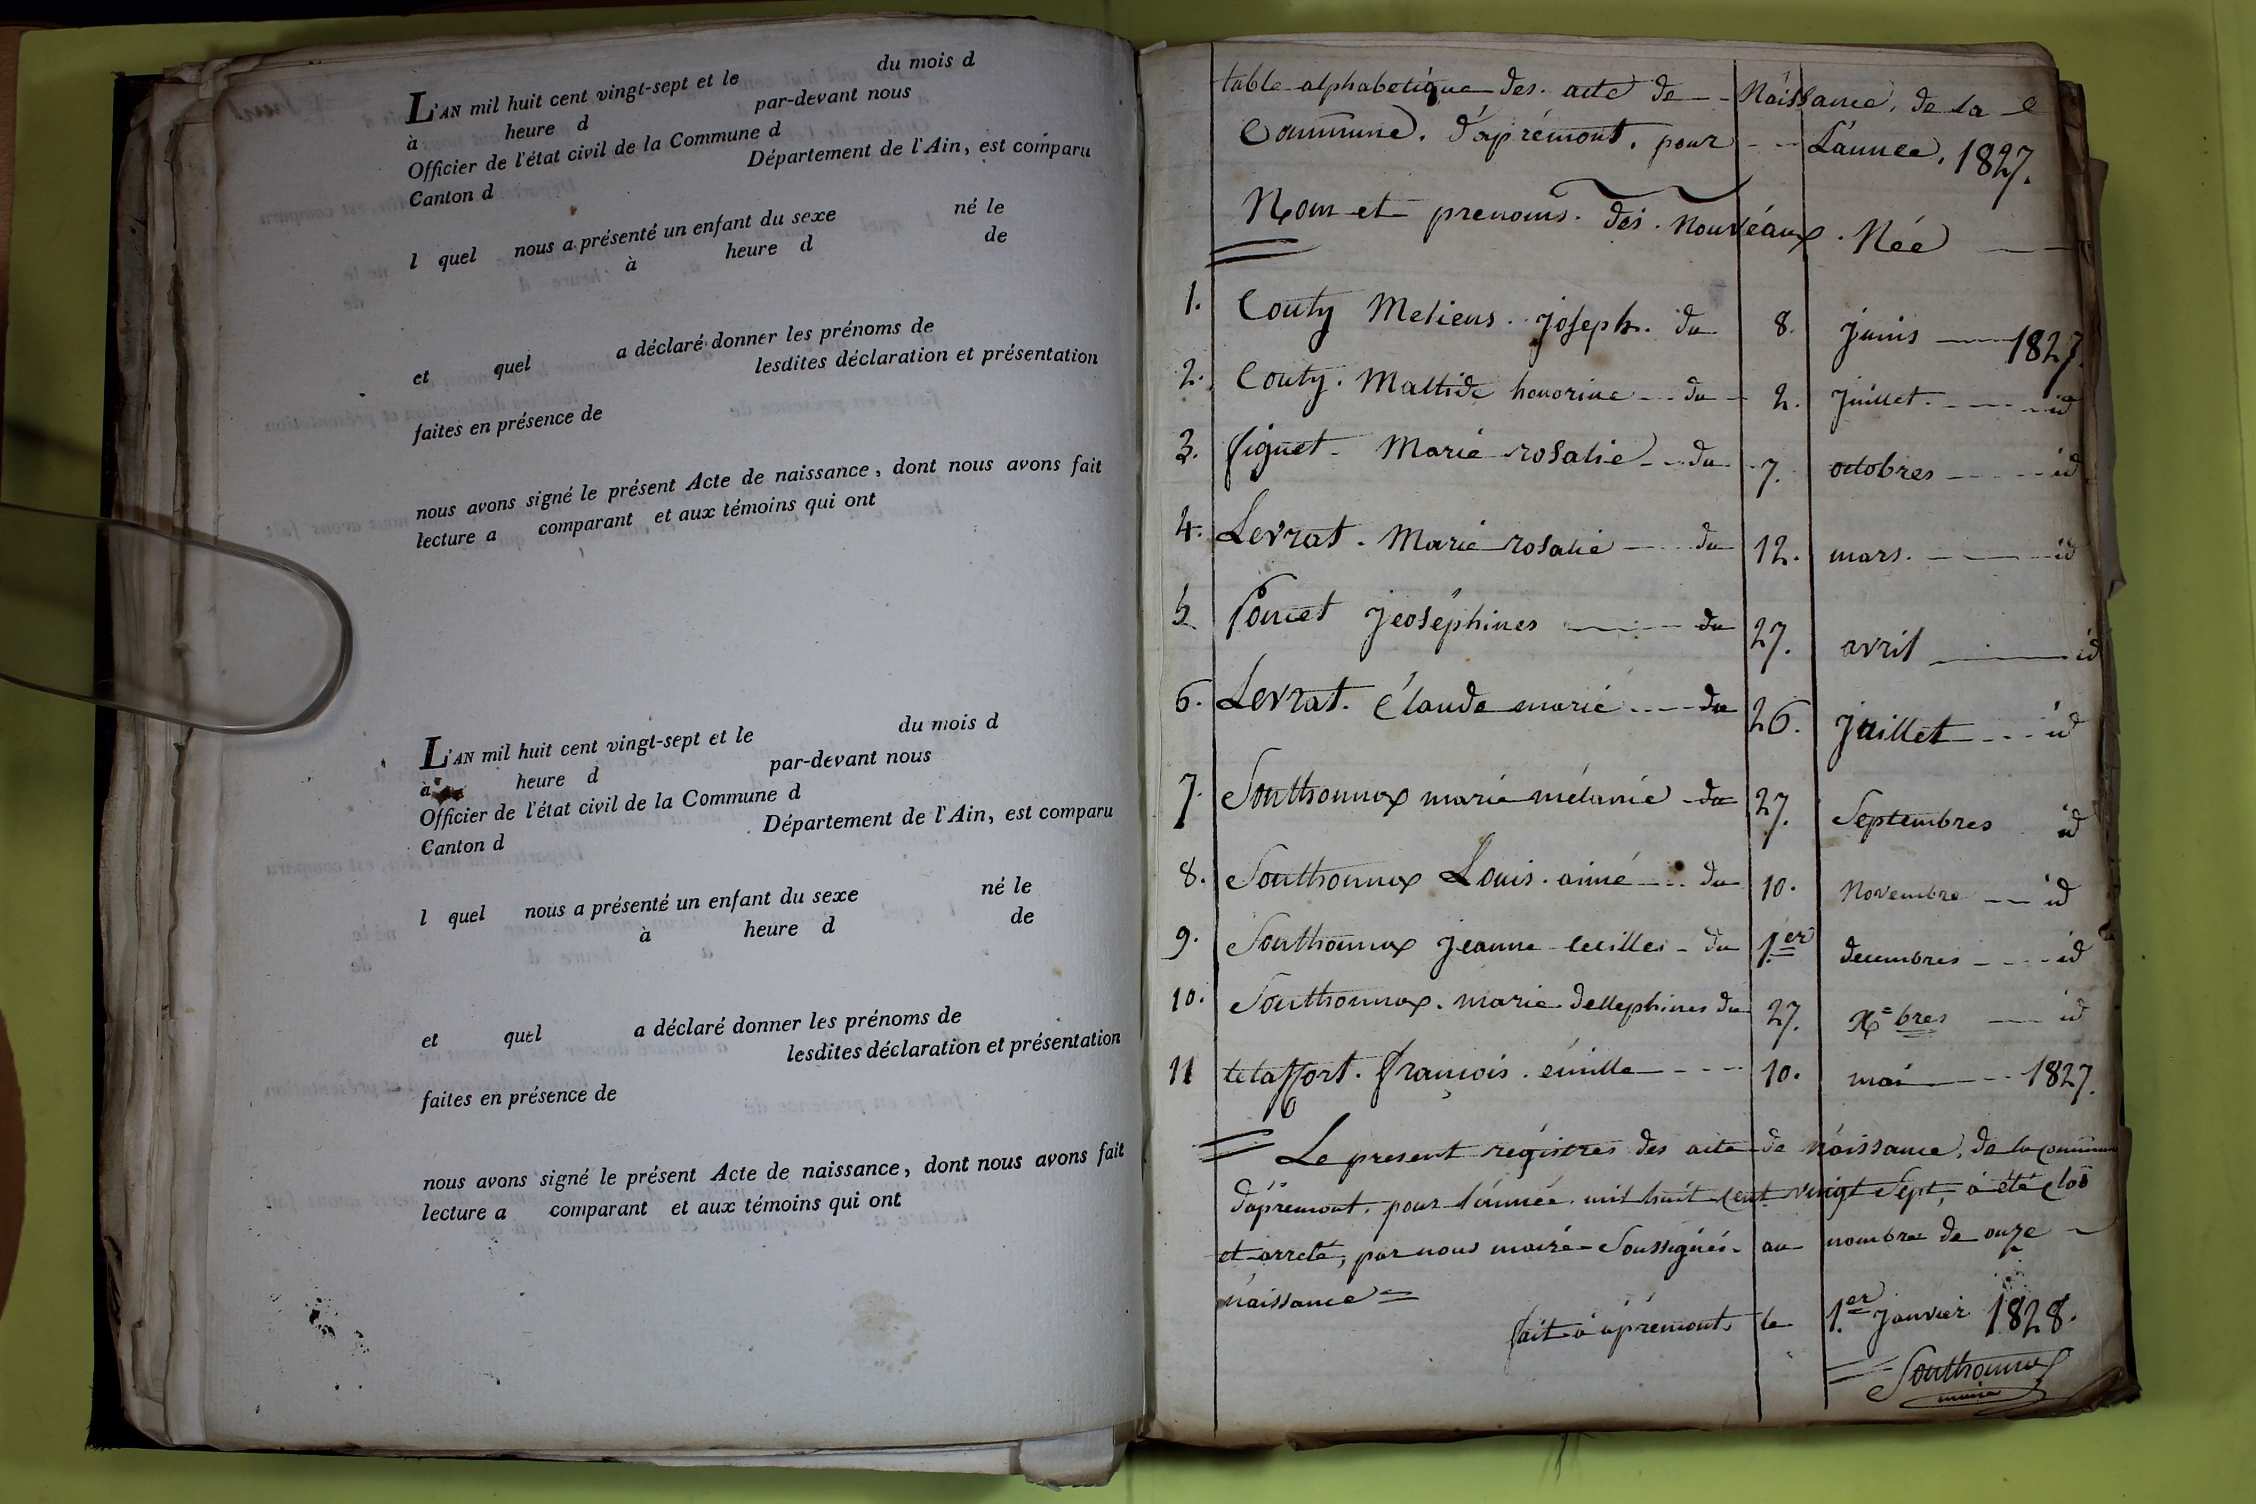 L'AN mil huit cent vingt-sept et le du mois d
à heure d par-devant nous
Officier de l'état civil de la Commune d
Canton d Département de l'Ain, est comparu
l quel nous a présenté un enfant du sexe né le
à heure d de
et quel a déclaré donner les prénoms de
lesdites déclaration et présentation
faites en présence de
nous avons signé le présent Acte de naissance, dont nous avons fait
lecture a comparant et aux témoins qui ont
L'AN mil huit cent vingt-sept et le du mois d
à heure d par-devant nous
Officier de l'état civil de la Commune d
Canton d Département de l'Ain, est comparu
l quel nous a présenté un enfant du sexe né le
à heure d de
et quel a déclaré donner les prénoms de
lesdites déclaration et présentation
faites en présence de
nous avons signé le présent Acte de naissance, dont nous avons fait
lecture a comparant et aux témoins qui ont
table alphabetique des acte de Naissance, de la
Commune, d'aprémont, pour L'année, 1827.
Nom et prenoms des Nouvéaux Née
1. Couty Joseph du 8. Juins 1827.
2. Couty Maltide honorine du 2. Juillet id
3. figuet Marie rosalie du 7. octobres id
4. Levrat Marie rosalie du 12. mars id
5 Poncet Jeoséphines du 27. avril id
6. Levrat Claude marie du 26. Juillet id
7. Southonnax marie mélanie du 27. Septembres id
8. Southonnax Louis aimé du 10. Novembre id
9. Southonnax Jeanne cecilles du 1er decembres id
10. Southonnax marie dellephines du 27. Xbres id
11 françois émille 10. mai 1827.
Le present régistres des acte de naissance, de la commune
d'apremont, pour l'année mil huit cent vingt sept, a été clos
et arreté, par nous maire Soussignés au nombre de onze
naissance
fait a apremont, le 1er Janvier 1828.
Southonnax
maire